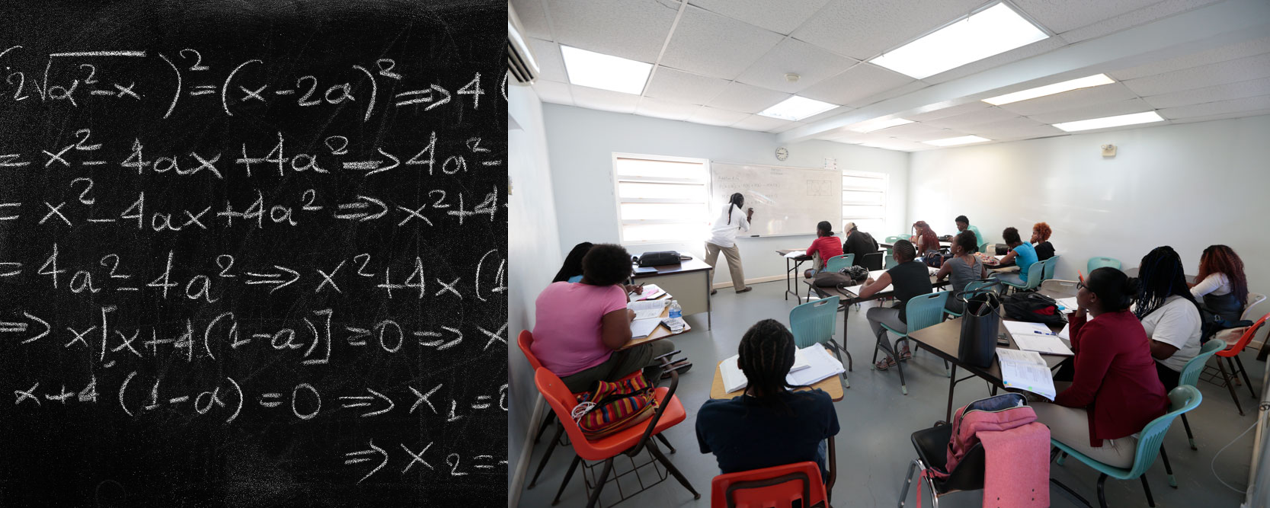 (2√a²-x )²=(x-2a)²⇒4(
= x²-4ax+4a²⇒4a²-
= x²-4ax+4a²⇒x²+4
= 4a²-4a²⇒x²+4x(1
⇒x[x+4(1-a)]=0⇒x
x+4(1-a)=0⇒x₁=0
⇒x₂=-